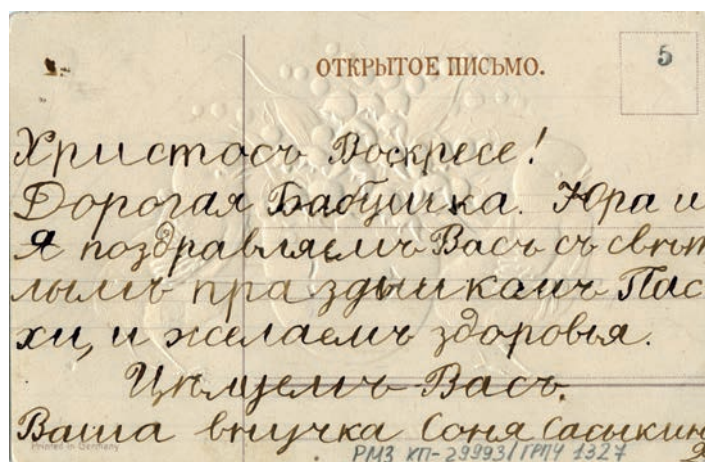 ОТКРЫТОЕ ПИСЬМО.
5
Христосъ Воскресе!
Дорогая Бабушка. Юра и
я поздравляемъ Васъ съ свѣт
лымъ праздникомъ Пас
хи, и желаемъ здоровья.
Цѣлуемъ Васъ.
Ваша внучка Соня Сасыкин
Printed in Germany
РМЗ КП-29993/ГРПЧ 1327